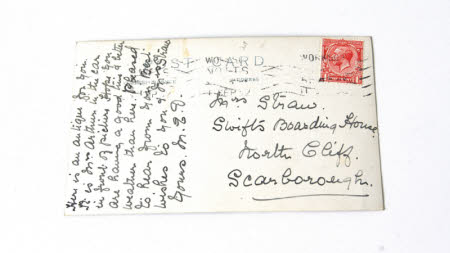 Here is an antique for you
It is Mr Arthur in the car
in front of picture Hope you
are having a good time & better
weather than here. Pleased
to hear from you Best
wishes to you & Jim Straw
Yours. M. E.
POST CARD.
Mrs Straw.
Swift's Boarding House
North Cliff.
Scarborough.